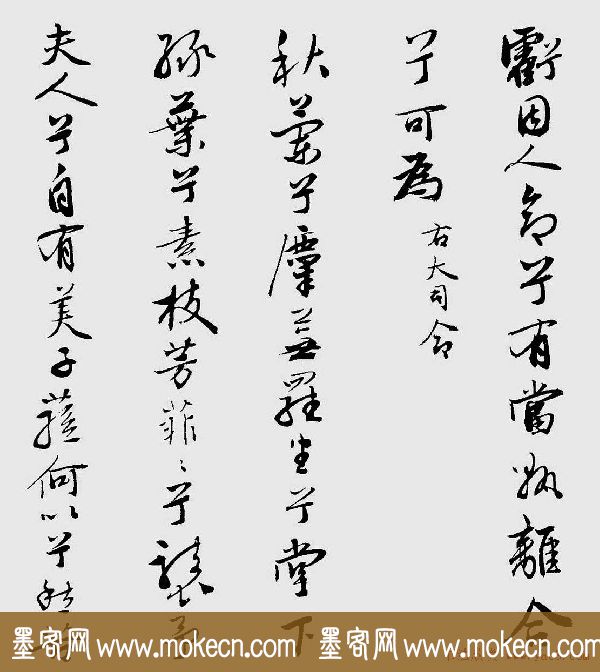 虧固人命兮有當孰離合
兮可為
右大司命
秋蘭兮麋蕪羅生兮堂下
綠葉兮素枝芳菲々兮襲予
夫人兮自有美子蓀何以兮愁苦
墨客网 www.mokecn.com 墨客网 www.mokecn.com